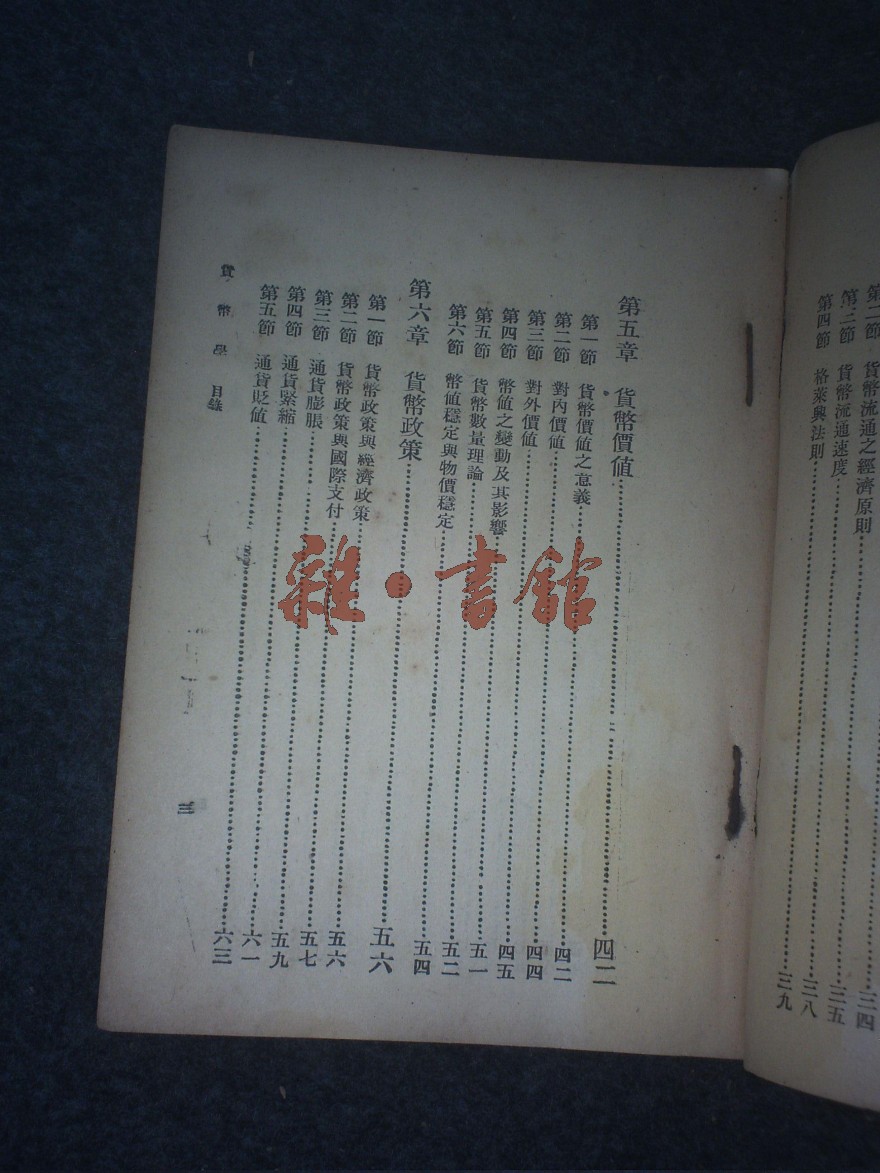 三四
第二節 貨幣流通之經濟原則……三五
第三節 貨幣流通速度……三八
第四節 格萊興法則……三九
第五章 貨幣價值……四二
第一節 貨幣價值之意義……四二
第二節 對內價值……四四
第三節 對外價值……四五
第四節 幣值之變動及其影響……五一
第五節 貨幣數量理論……五二
第六節 幣值穩定與物價穩定……五四
第六章 貨幣政策……五六
第一節 貨幣政策與經濟政策……五六
第二節 貨幣政策與國際支付……五七
第三節 通貨膨脹……五九
第四節 通貨緊縮……六一
第五節 通貨貶值……六三
貨幣學 目錄
三
雜·書館